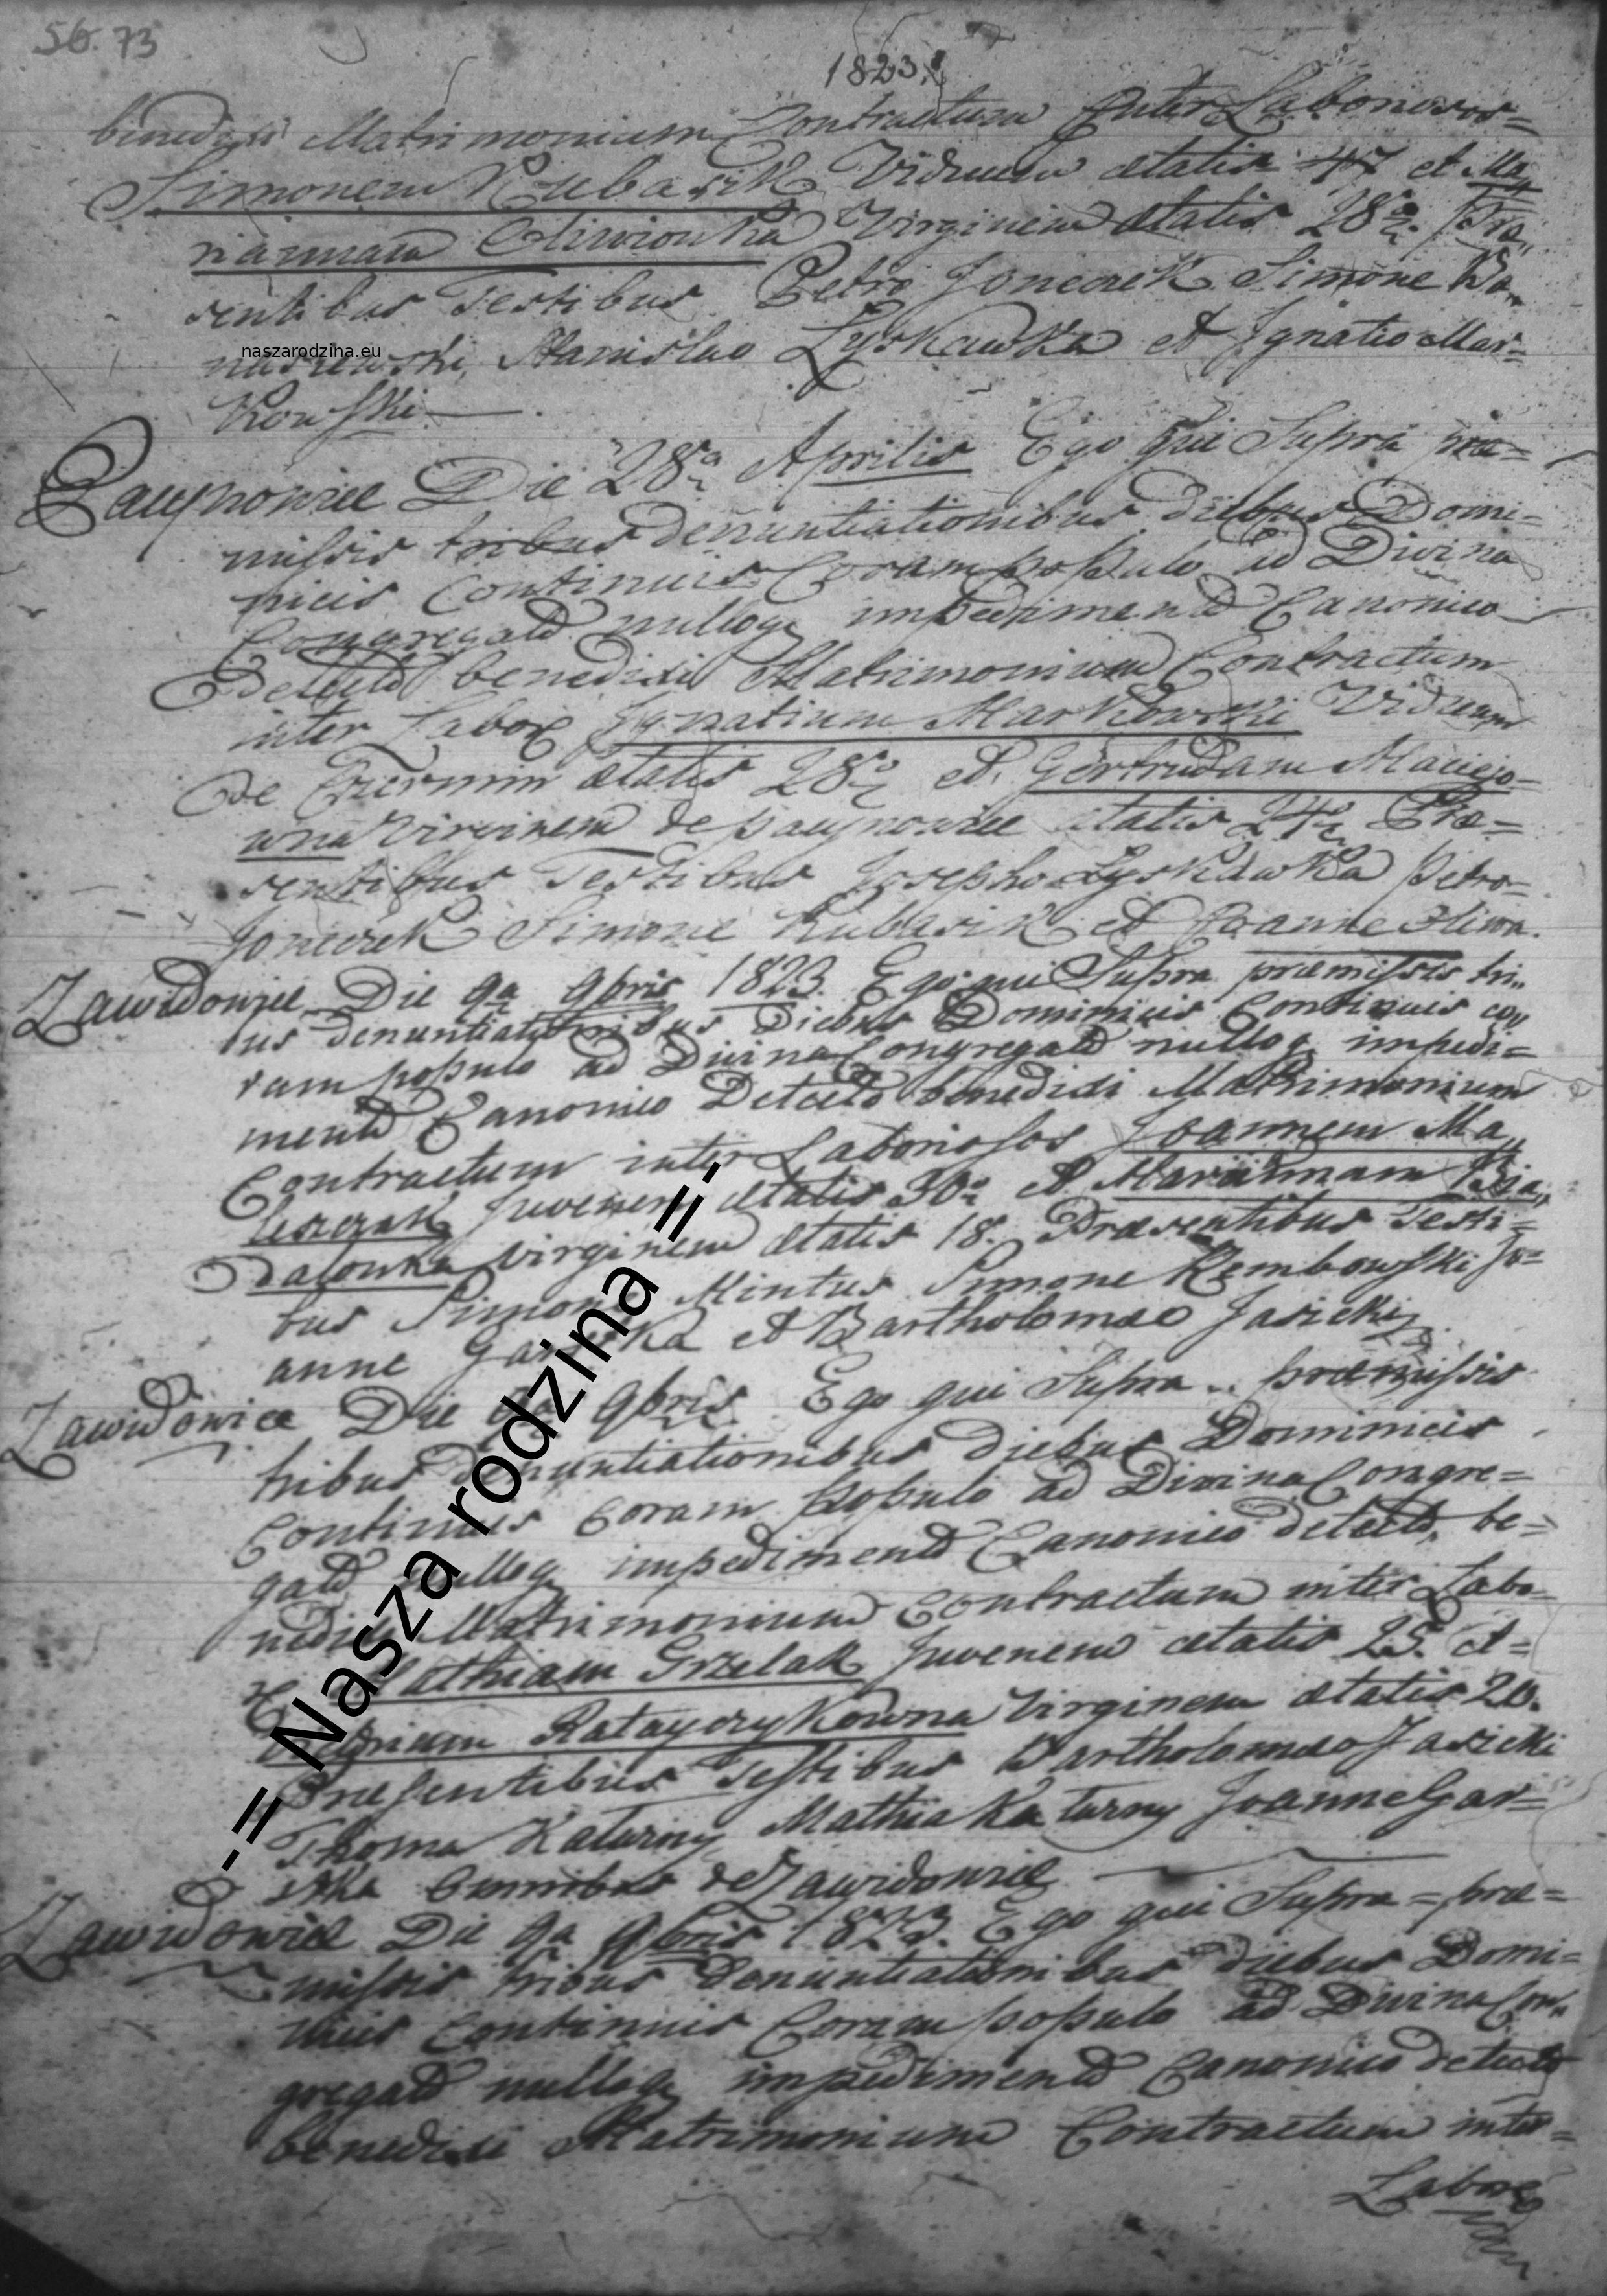 56. 73
1823.
benedixi Matrimonium Contractum Inter Laboriosos=
Simonem Kubasik Viduum ætatis 47 et Ma„
riannam Oliwionka Virginem ætatis 28a. Præ„
sentibus Testibus Petro Jonczek Simone Ba„
naszewski, Stanislao Lyskawka et Ignatio Mar=
kowski.
naszarodzina.eu
Die 28a Aprilis Ego qui Supra præ=
missis tribus denuntiationibus diebus Domi=
nicis Continuis Coram populo ad Divina
Congregato nulloq impedimento Canonico
detecto benedixi Matrimonium Contractum
inter Labor Ignatium Markowski Viduum
de ætatis 28 et Gertrudam Maciejo=
wna Virginem de ætatis 24 Præ=
sentibus Testibus Josepho Lyskawka Petro=
Jonczek Simone Kubasik et Joanne Oliwa.
Zawidowice Die 9a 9bris 1823. Ego qui Supra præmissis tri„
bus denuntiationibus Diebus Dominicis Continuis co„
ram populo ad Divina Congregato nulloq impedi=
mento Canonico Detecto benedixi Matrimonium
Contractum inter Laboriosos Joannem Ma„
leszczak Juvenem ætatis 30 et Mariannam Bia„
dalonka Virginem ætatis 18. Præsentibus Testi=
bus Simone Mintus Simone Rembowski Jo=
anne et Bartholomæo Jasicki
Zawidowice Die 9a 9bris Ego qui Supra præmissis
tribus denuntiationibus diebus Dominicis
Continuis Coram populo ad Divina Congre=
gato nulloq impedimento Canonico detecto, be=
nedixi Matrimonium Contractum inter Labo=
Mathiam Grzelak Juvenem ætatis 25. et=
Ratayczykowna Virginem ætatis 20.
Præsentibus Testibus Bartholomæo Jasicki
Thoma Katurny Mathia Katurny Joanne Gar=
omnibus de Zawidowice
Zawidowice Die 9a 9bris 1823. Ego qui Supra= præ=
missis tribus denuntiationibus diebus Domi=
nicis Continuis Coram populo ad Divina Con„
gregato nulloq impedimento Canonico detecto
benedixi Matrimonium Contractum inter=
Labor
-= Nasza rodzina =-